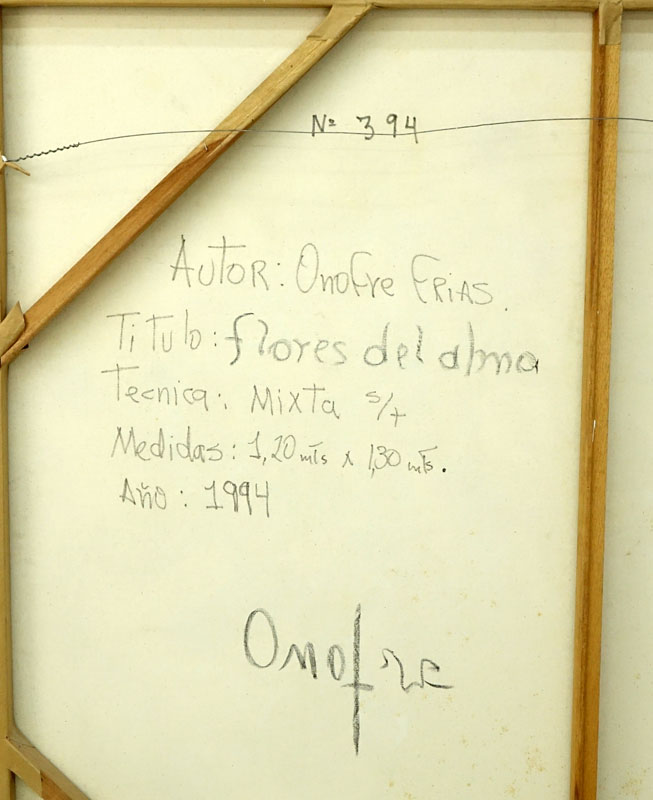 Nº 394
AUTOR: Onofre FRIAS.
Titulo: flores del alma
Tecnica: Mixta s/t
Medidas: 1,20 mts x 1,30 mts.
Año: 1994
Onofre